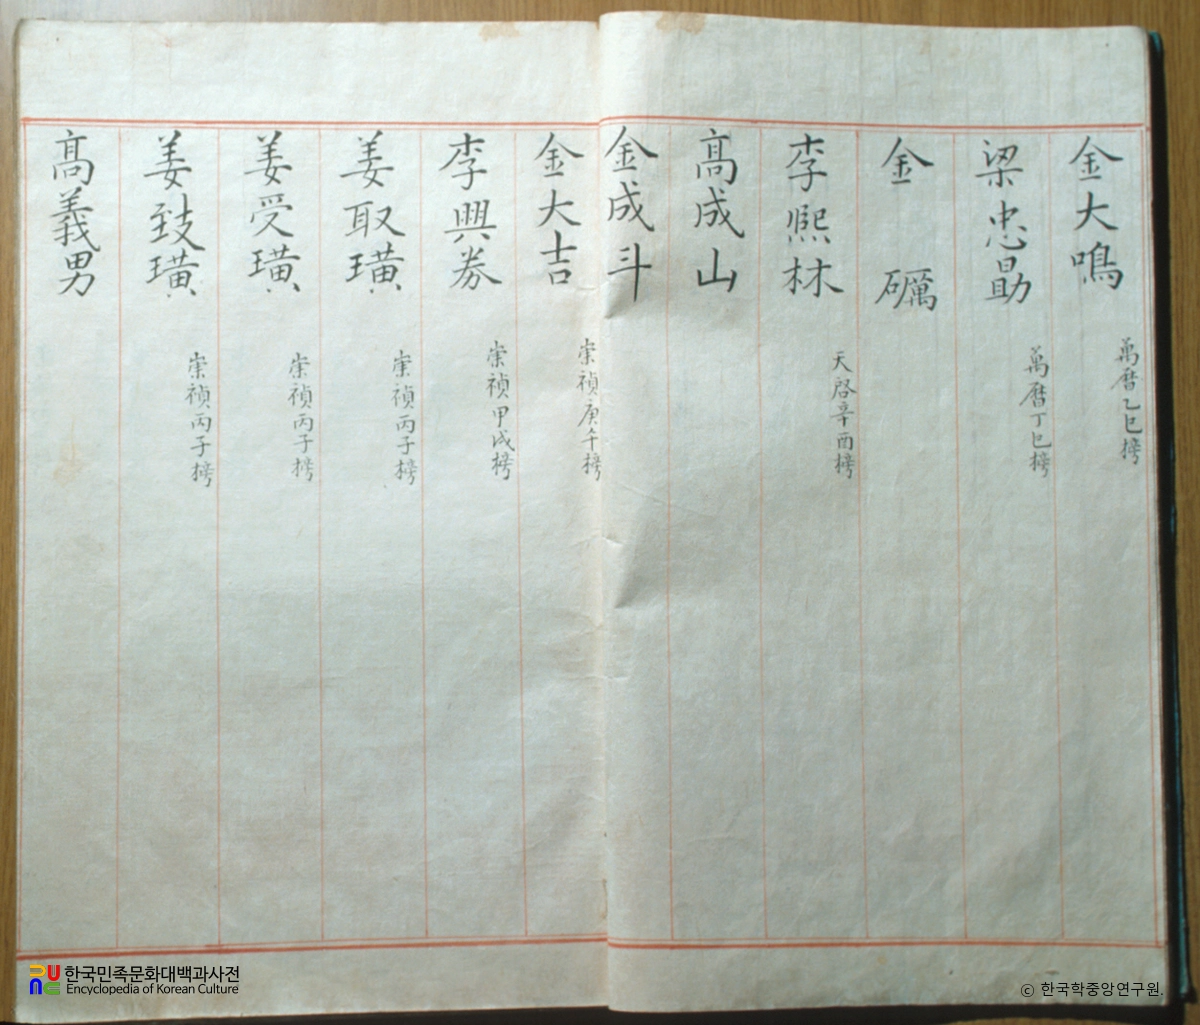 金大鳴
萬曆乙巳榜
梁忠勗
萬曆丁巳榜
金礪
李熙林
天啓辛酉榜
高成山
金成斗
金大吉
崇禎庚午榜
李興劵
崇禎甲戌榜
姜取璜
崇禎丙子榜
姜受璜
崇禎丙子榜
姜致璜
崇禎丙子榜
高義男
한국민족문화대백과사전
Encyclopedia of Korean Culture
ⓒ 한국학중앙연구원.